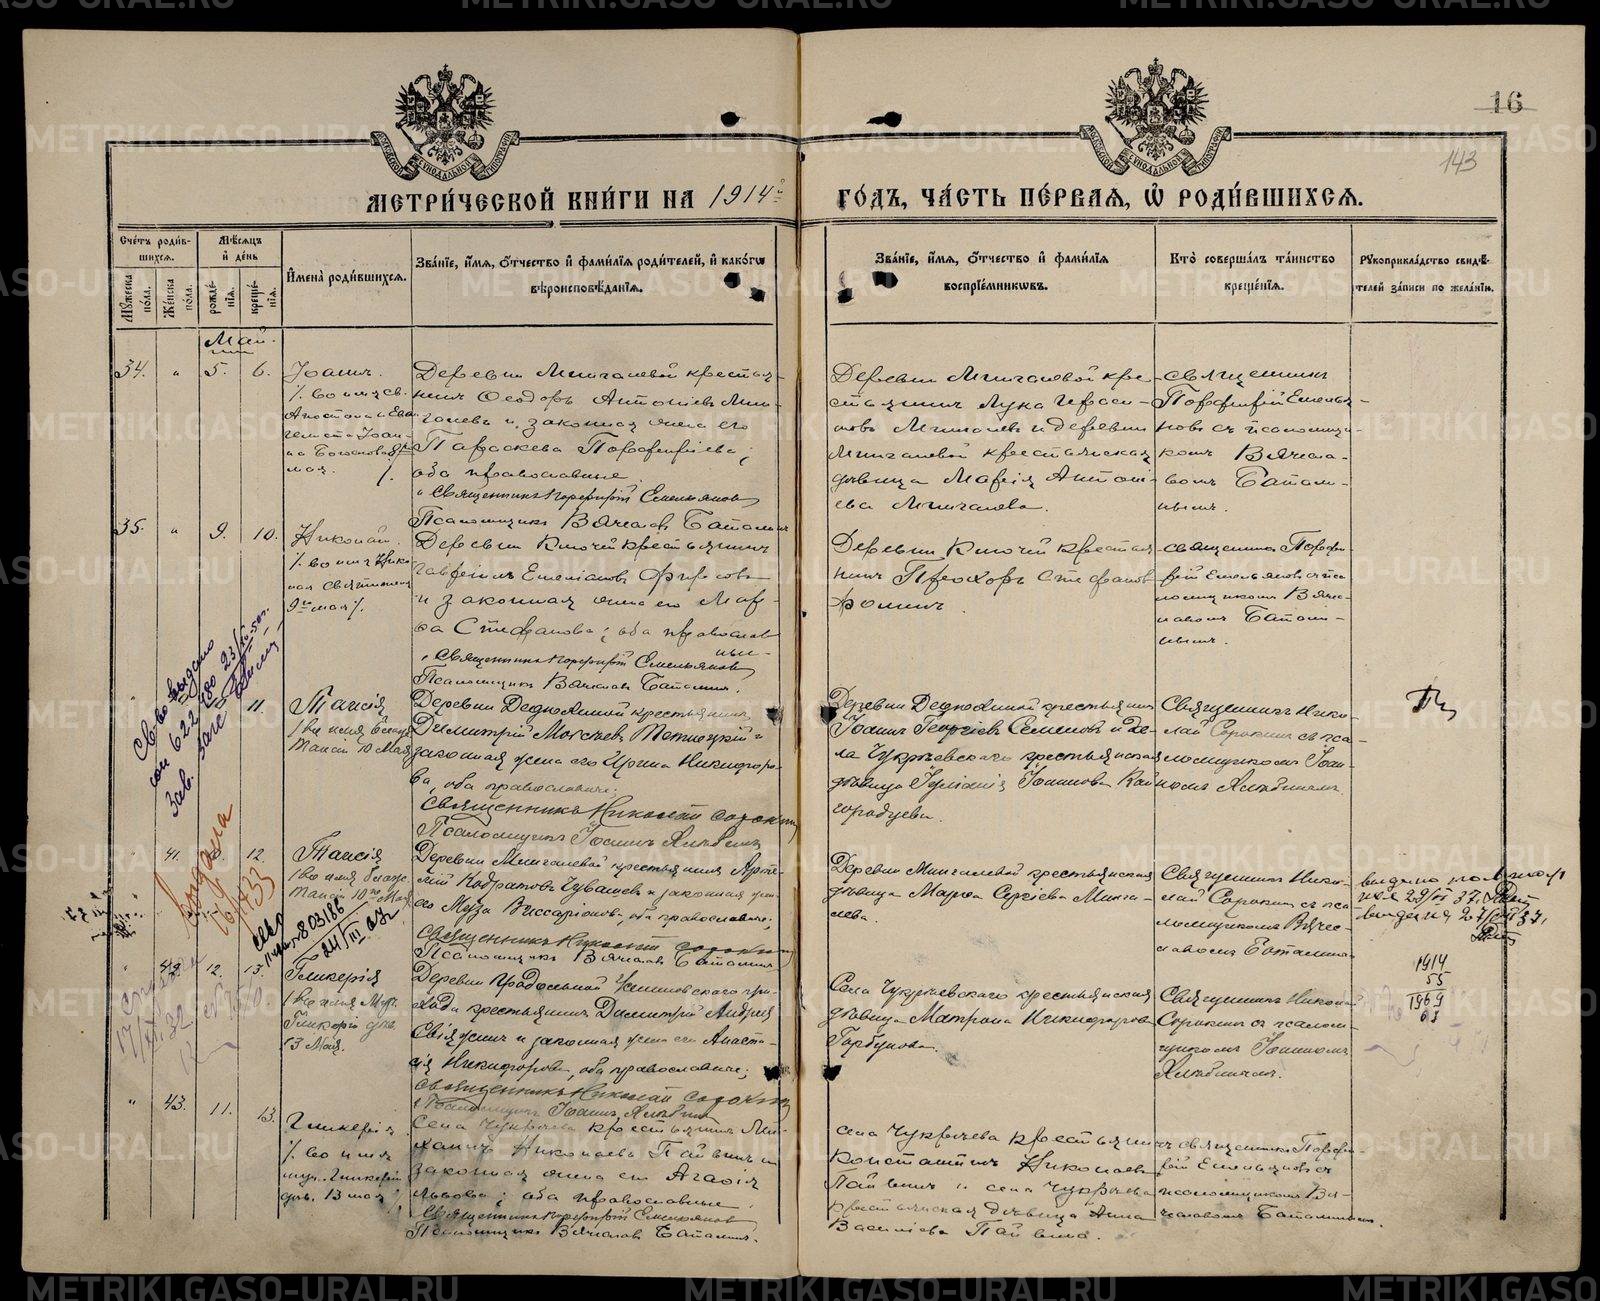 16
143
МЕТРИ́ЧЕСКОЙ КНИ́ГИ НА 1914й ГО́ДЪ, ЧА́СТЬ ПЕ́РВАЯ, Ѡ РОДИ́ВШИХСЯ.
Сче́тъ роди́вшихся.
Му́жеска по́ла.
Же́нска по́ла.
Мѣ́сяцъ и день
рожде́нія.
креще́нія.
Имена̀ роди́вшихся.
Зва́ніе, и́мя, о́тчество и фами́лія роди́телей, и како́гω
вѣроисповѣ́данія.
Зва́ніе, и́мя, о́тчество и фами́лія
воспріе́мникωвъ.
Кто̀ соверша́лъ та́инство
креще́нія.
Рукоприкла́дство свидѣ́-
телей за́писи по жела́нію.
Май
34. " 5. 6.
Іоаннъ.
/. во имя св.
Апостола и Еван
гелиста Іоан-
на Богослова 8го
мая. /.
Деревни Мингалевой крестья-
нинъ Ѳеодоръ Антоніевъ Мин-
галевъ и законная жена его
Параскева Порфиріева;
оба православные
Священникъ Порфирій Емельяновъ
Псаломщикъ Вячеславъ Баталинъ
Деревни Мингалевой кре-
стьянинъ Лука Гераси-
мовъ Мингалевъ и деревни
Мингалевой крестьянская
дѣвица Марія Антоні-
ева Мингалева.
Священникъ
Порфирій Емелья-
новъ съ псаломщи-
комъ Вячесла-
вомъ Батали-
нымъ.
35. " 9. 10.
Николай.
/. во имя Нико
лая святителя
9го мая /.
Деревни Ключей крестьянинъ
Гавріилъ Емеліановъ
и законная жена его Мар-
ѳа Стефанова; оба православ
ные.
Священникъ Порфирій Емельяновъ
Псаломщикъ Вячеславъ Баталинъ.
Деревни Ключей крестья
нинъ Прохоръ Стефановъ
Ѳоминъ.
Священникъ Порфи-
рій Емельяновъ съ пса
ломщикомъ Вяче-
славомъ Батали-
нымъ.
11.
Таисія
/во имя блаж.
Таисіи 10 Мая/
Деревни Дедюхиной крестьянинъ
Димитрій Моисеевъ и
законная жена его Ирина Никифоро-
ва, оба православные;
Священникъ Николай Сорокинъ
Псаломщикъ Іоаннъ
Деревни Дедюхиной крестьянинъ
Іоаннъ Георгіевъ Семеновъ и се-
ла Чукрѣевскаго крестьянская
дѣвица Іуліанія Іоаннова Кай
городцева.
Священникъ Нико-
лай Сорокинъ съ пса-
ломщикомъ Іоан-
номъ
свво выдано
622480 23/
Зав. загс
выдана
16/I 33
" 41. 12.
Таисія
/во имя блаж.
Таисіи 10го Мая/
Деревни Мингалевой крестьянинъ Арте-
мій Кодратовъ Чувашевъ и законная же-
на его Муза Виссаріонова, оба православные;
Священникъ Николай Сорокинъ
Псаломщикъ Вячеславъ Баталинъ
Деревни Мингалевой крестьянская
дѣвица Марѳа Сергіева Минга-
лева.
Священникъ Нико-
лай Сорокинъ съ пса-
ломщикомъ Вячес-
лавомъ Баталинымъ
803186
24/III
" 42. 12. 13.
Гликерія
/во имя Муч.
Гликеріи дѣв.
13 Мая.
Деревни при-
хода крестьянинъ Димитрій Андреев
и законная жена его Анаста-
сія Никифорова, оба православные;
Священникъ Николай Сорокинъ
Псаломщикъ Іоаннъ
Села Чукрѣевскаго крестьянская
дѣвица Матрона Никифорова
Горбунова.
Священникъ Николай
Сорокинъ съ псалом-
щикомъ Іоанномъ
1914
55
1969
" 43. 11. 13.
Гликерія
/. во имя
муч. Гликеріи
дѣв. 13 мая /.
Села Чукрѣева крестьянинъ Ми-
хаилъ Николаевъ Пайвинъ и
законная жена его Агаѳія
Львова; оба православные.
Священникъ Порфирій Емельяновъ
Псаломщикъ Вячеславъ Баталинъ.
Села Чукрѣева крестьянинъ
Константинъ Николаевъ
Пайвинъ и села Чукрѣева
крестьянская дѣвица Анна
Василіева Пайвина.
Священникъ Порфи-
рій Емельяновъ съ
псаломщикомъ Вя-
чеславомъ Баталинымъ.
METRIKI.GASO-URAL.RU